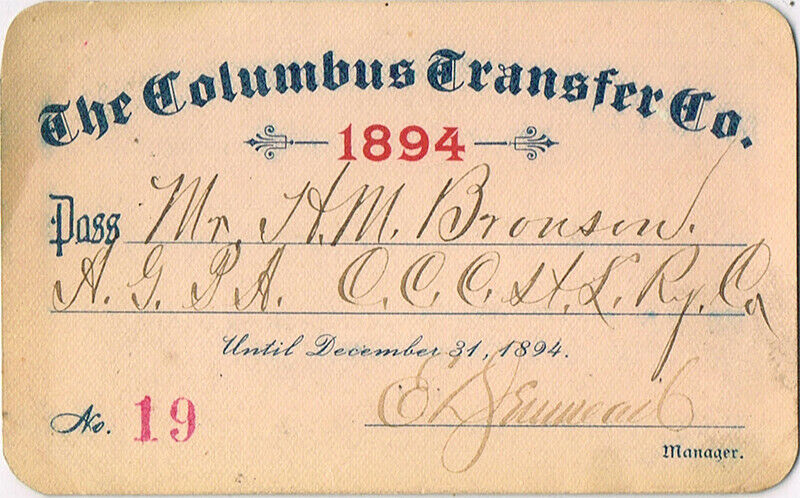 The Columbus Transfer Co.
1894
Pass Mr. H. M. Bronson.
A. G. P. A. C. C. C. St. L. Ry. Co
Until December 31, 1894.
No. 19
Manager.